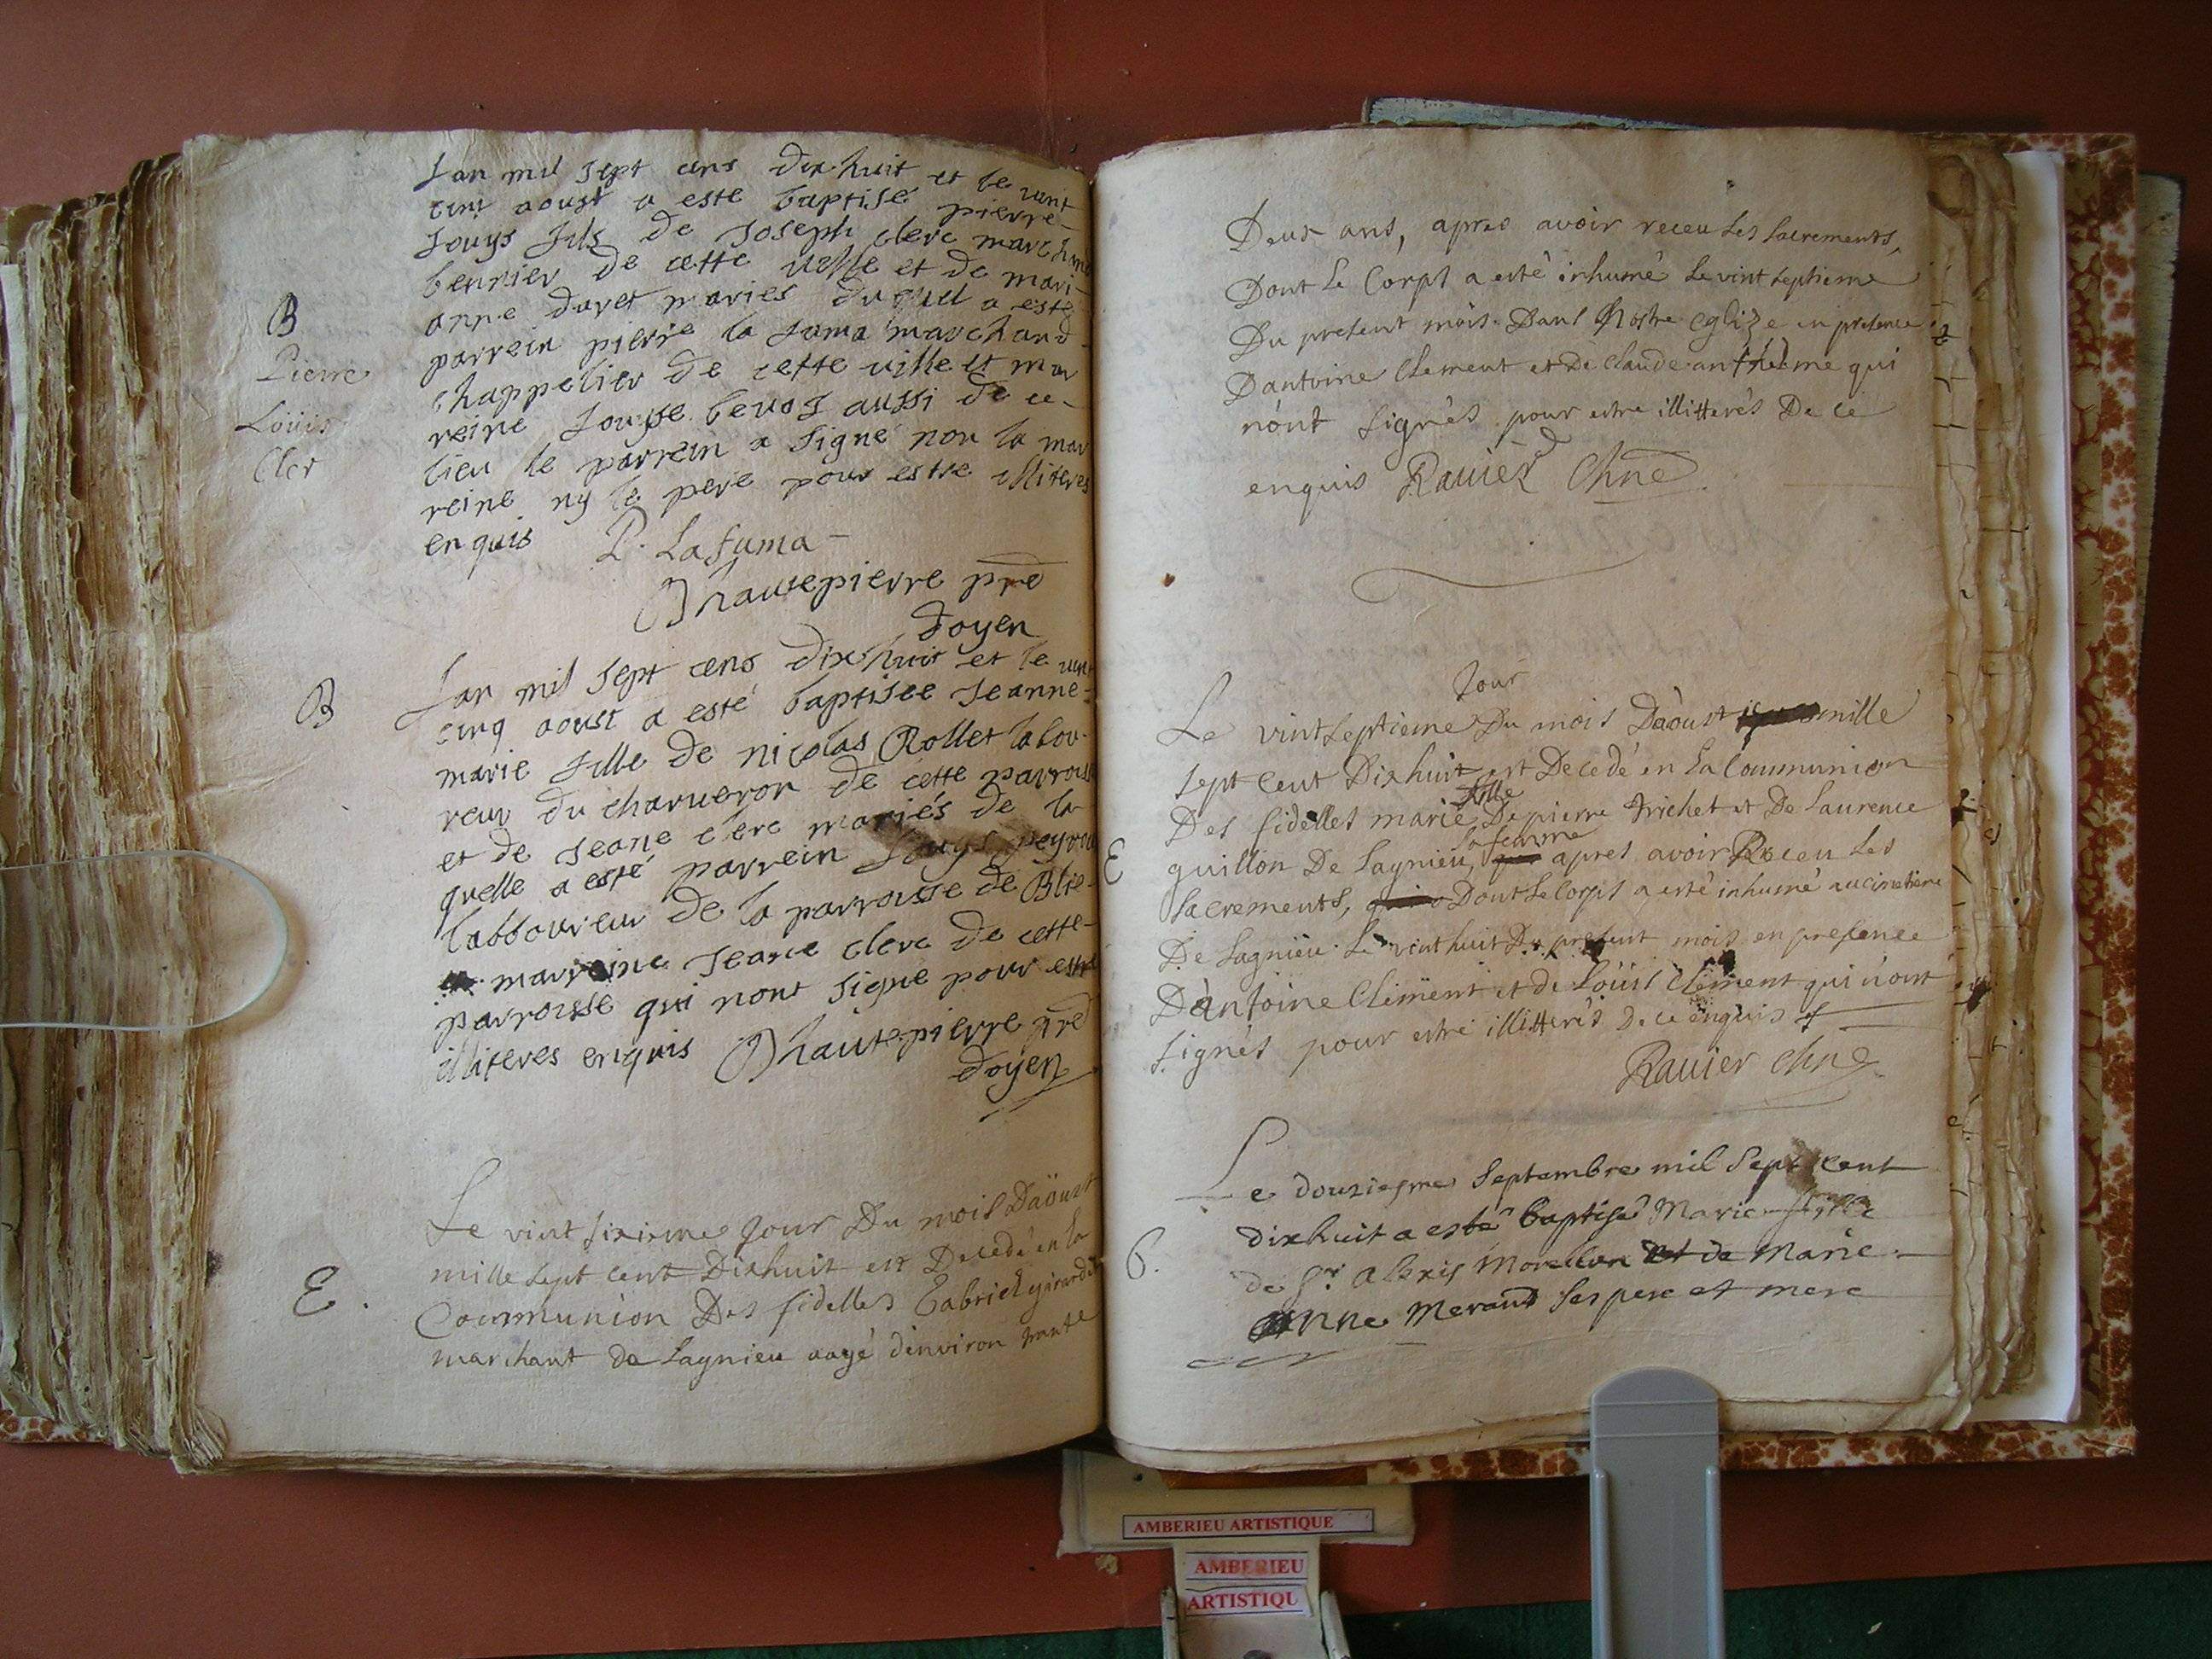 Lan mil sept cens dix huit et le vint
cinq aoust a este baptisé pierre
Louys fils de Joseph clerc marchand
beurier de cette ville et de mari-
anne duret mariés duquel a esté
parrein pierre la fuma marchand
chappelier de cette ville et mar
reine Louyse bevos aussi de ce
lieu le parrein a signé non la mar
reine ny le pere pour estre illiteres
enquis P. Lafuma
Dhautepierre pre
doyen
B
Pierre
Loüis
Cler
B
Lan mil sept cens dix huit et le vint
cinq aoust a esté baptisee Jeanne
marie fille de nicolas Rollet labou-
reur du charveron de cette parroisse
et de Jeane clerc mariés de la
quelle a esté parrein Louys peyrou
labboureur de la parroisse de Blie
marreine Jeane clerc de cette
parroisse qui nont signe pour estre
illiteres enquis Dhautepierre pre
doyen
E.
Le vint sixieme Jour Du mois Daöust
mille sept cent Dixhuit est Decedé en la
Communion Des fidelles Gabriel girardet
marchant de Lagnieu aagé d'environ trante
Deux ans, apres avoir receu Les sacrements,
Dont Le Corps a esté inhumé Le vint septieme
Du present mois Dans Nostre eglize en presence
Dantoine Clement et De Claude anthelme qui
nónt signés pour estre illitterés De ce
enquis Ravier Chne
E
Jour
Le vintseptieme Du mois Daòust mille
sept Cent Dixhuit est Decedé en La Communion
fille
Des fidelles marie De pierre trichet et De Laurence
sa femme
guillon De Lagnieu, apres avoir Receu Les
sacrements, Dont Le Corps a esté inhumé au cimetiere
De Lagnieu Le vint huit Du present mois en presence
D'antoine Clement et de Loüis Clement qui n'ont
signés pour estre illitterés De ce enquis
Ravier Chne
6.
Le douziesme Septembre mil Sept cent
dixhuit a esté baptisé Marie fille
de Sr. Alexis Morellon et de Marie
Anne Meraud ses pere et mere
AMBERIEU ARTISTIQUE
AMBERIEU
ARTISTIQU